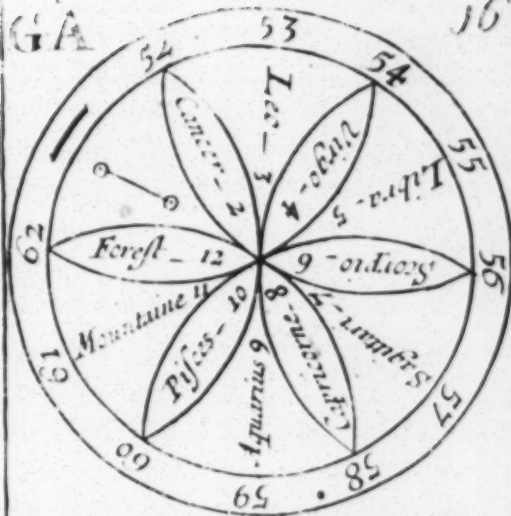 GA
53
54
55
56
57
58
59
60
61
62
Cancer - 2
Leo - 3
Virgo - 4
Libra - 5
Scorpio - 6
Capricorne - 8
Aquarius 9
Piſces - 10
Mountaine 11
Foreſt - 12